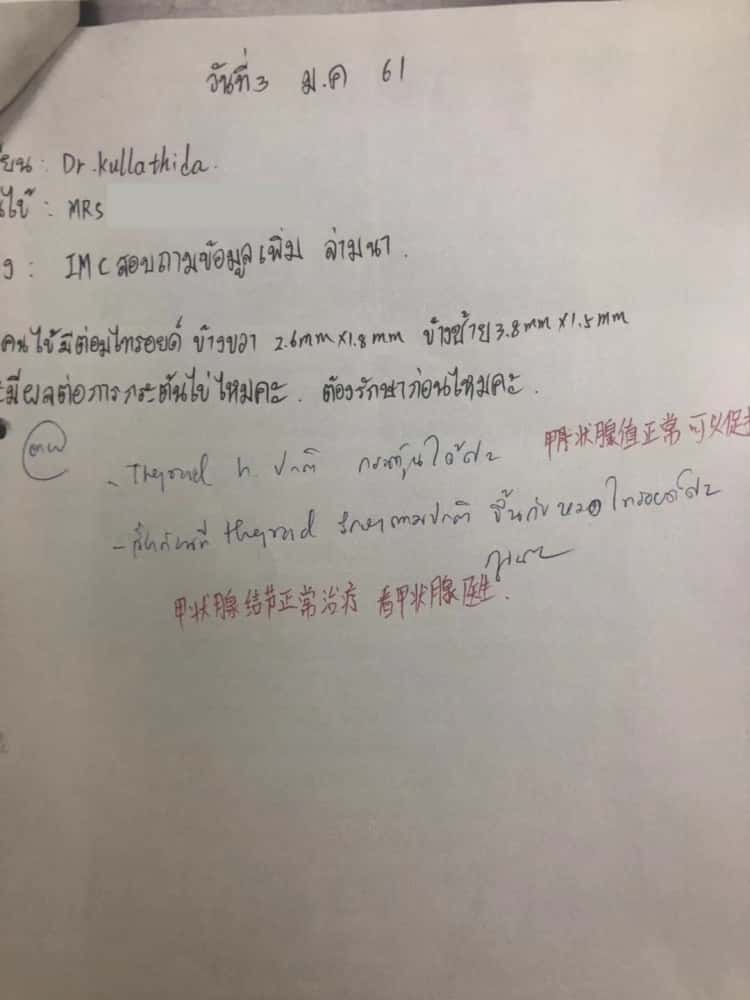 วันที่ 3 ม.ค 61
ียน : Dr.kullathida.
นไข้ : MRS
ง : IMC สอบถามข้อมูลเพิ่ม ล่ามนา.
คนไข้มีต่อมไทรอยด์ ข้างขวา 2.6mm x 1.8mm ข้างซ้าย 3.8mm x 1.5mm
ะมีผลต่อการกระตุ้นไข่ไหมคะ. ต้องรักษาก่อนไหมคะ.
ตอบ
- Thyroid h. ปกติ กระตุ้นได้ค่ะ 甲状腺值正常 可以促
- thyroid รักษาตามปกติ ขึ้นกับ หมอไทรอยด์ค่ะ
甲状腺结节正常治疗 看甲状腺医生.